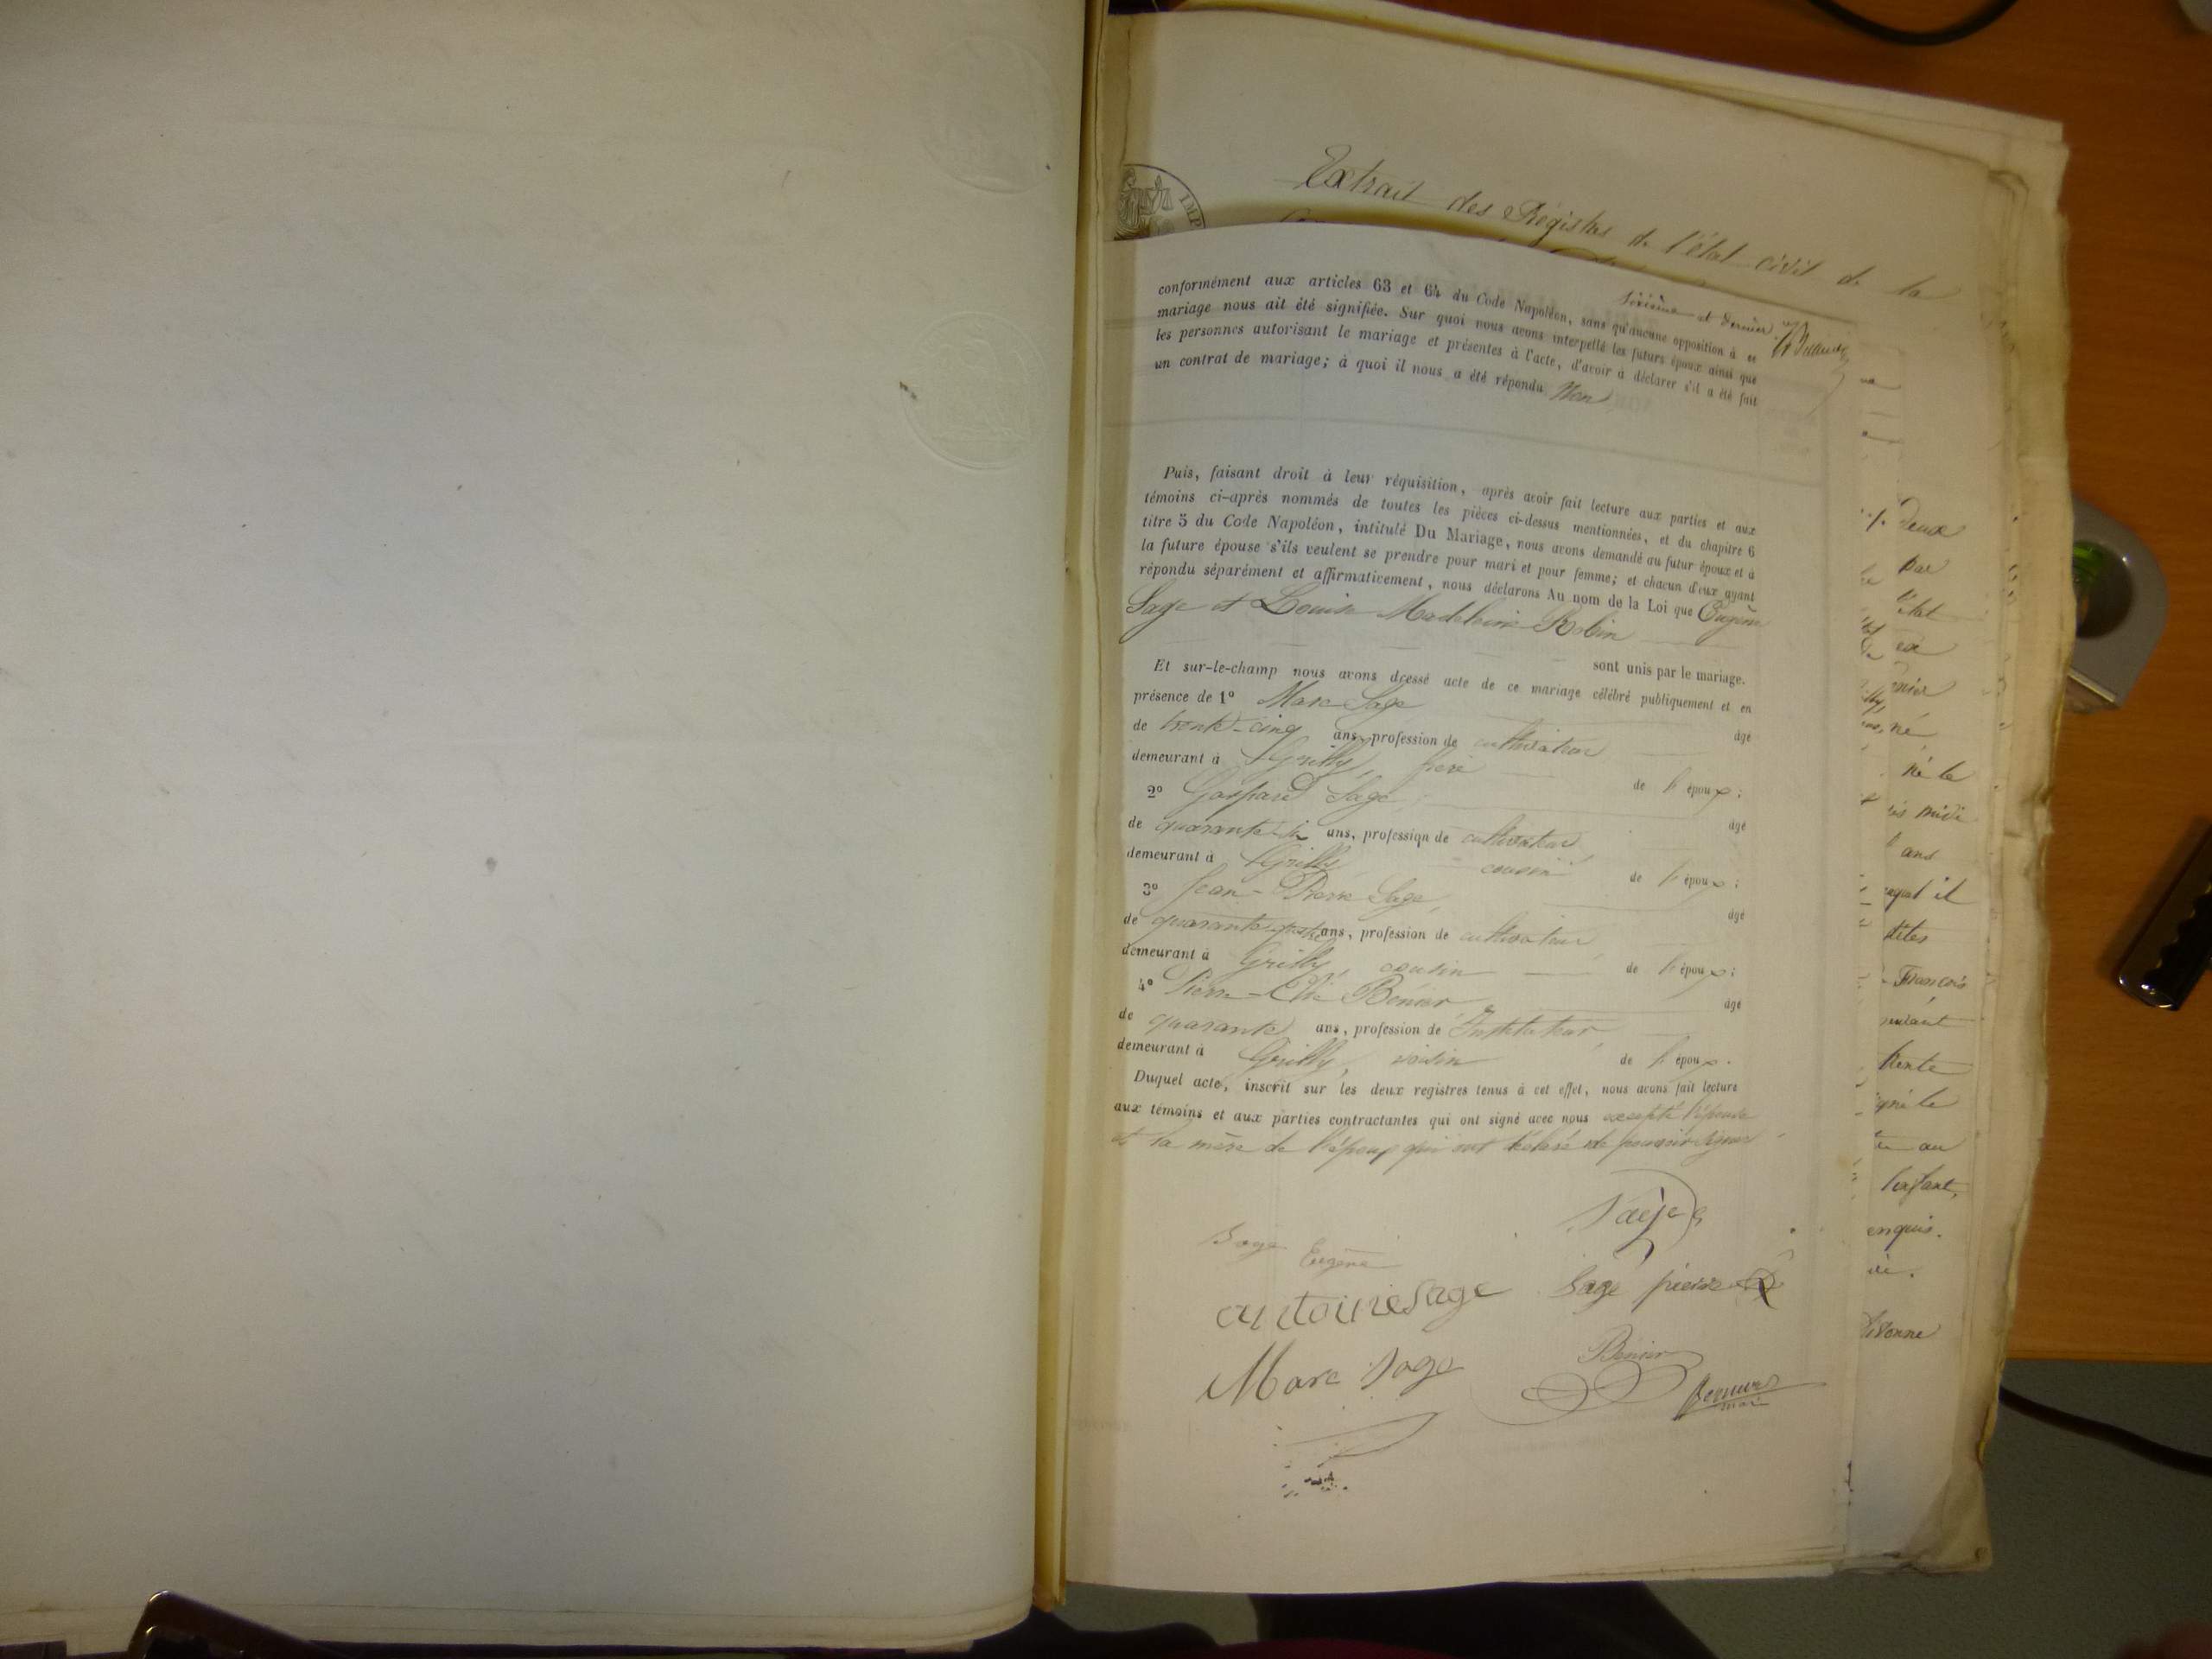 Extrait des Régistres de l'état civil de la
IMP
sixième et dernier
conformément aux articles 63 et 64 du Code Napoléon, sans qu'aucune opposition à ce
mariage nous ait été signifiée. Sur quoi nous avons interpellé les futurs époux ainsi que
les personnes autorisant le mariage et présentes à l'acte, d'avoir à déclarer s'il a été fait
un contrat de mariage; à quoi il nous a été répondu Non
Puis, faisant droit à leur réquisition, après avoir fait lecture aux parties et aux
témoins ci-après nommés de toutes les pièces ci-dessus mentionnées, et du chapitre 6
titre 5 du Code Napoléon, intitulé Du Mariage, nous avons demandé au futur époux et à
la future épouse s'ils veulent se prendre pour mari et pour femme; et chacun d'eux ayant
répondu séparément et affirmativement, nous déclarons Au nom de la Loi que Eugène
Sage et Louise Madeleine Robin
sont unis par le mariage.
Et sur-le-champ nous avons dressé acte de ce mariage célébré publiquement et en
présence de 1º Marc Sage
âgé
de trente-cinq ans, profession de cultivateur
demeurant à Grilly, frère de l'époux;
2º Gaspard Sage
âgé
de quarante-six ans, profession de cultivateur,
demeurant à Grilly cousin de l'époux;
3º Jean-Pierre Sage,
âgé
de quarante-quatre ans, profession de cultivateur,
demeurant à Grilly, cousin de l'époux;
4º Pierre-Elie Bénier
âgé
de quarante ans, profession de Instituteur,
demeurant à Grilly, voisin de l'époux.
Duquel acte, inscrit sur les deux registres tenus à cet effet, nous avons fait lecture
aux témoins et aux parties contractantes qui ont signé avec nous excepté l'épouse
et la mère de l'époux qui ont déclaré ne pouvoir signer
Sage
Sage Eugène
antoine Sage Sage pierre
Marc Sage Bénier
deux
par
l'état
né
né le
midi
ans
il
dites
François
trente
au
l'enfant,